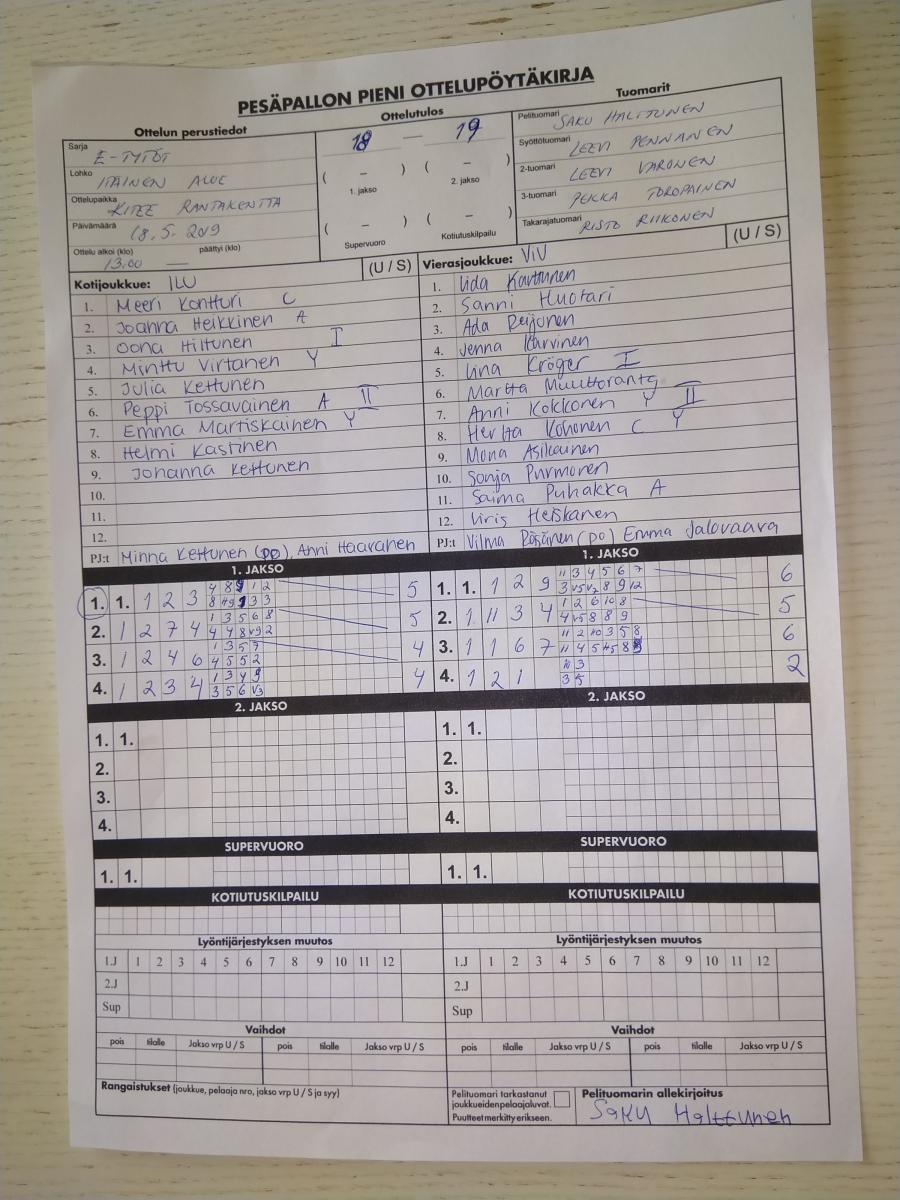 PESÄPALLON PIENI OTTELUPÖYTÄKIRJA
Ottelun perustiedot
Sarja E-TYTÖT
Lohko ITÄINEN ALUE
Ottelupaikka KITEE RANTAKENTTÄ
Päivämäärä 18.5. 2019
Ottelu alkoi (klo) päättyi (klo)
13.00 —
Ottelutulos
18 — 19
( – ) ( – )
1. jakso 2. jakso
( – ) ( – )
Supervuoro Kotiutuskilpailu
Tuomarit
Pelituomari SAKU HALTTUNEN
Syöttötuomari LEEVI PENNANEN
2-tuomari LEEVI VARONEN
3-tuomari PEKKA TOROPAINEN
Takarajatuomari RISTO RIIKONEN
Kotijoukkue: ILU (U / S)
1. Meeri Kontturi C
2. Joanna Heikkinen A
3. Oona Hiltunen I
4. Minttu Virtanen Y
5. Julia Kettunen
6. Peppi Tossavainen A II
7. Emma Martiskainen Y
8. Helmi Kastinen
9. Johanna Kettunen
10.
11.
12.
PJ:t Minna Kettunen (PO), Anni Haaranen
Vierasjoukkue: ViV (U / S)
1. Iida Karttunen
2. Sanni Huotari
3. Ada Reijonen
4. Jenna Karvinen
5. Iina Kröger I
6. Martta Muuttoranta
7. Anni Kokkonen Y II
8. Hertta Kohonen C Y
9. Mona Asikainen
10. Sonja Purmonen
11. Saima Puhakka A
12. Iiris Heiskanen
PJ:t Vilma Räsänen (PO) Emma Jalovaara
1. JAKSO
1. 1. 1 2 3 5
2. 1 2 7 4 5
3. 1 2 4 6 4
4. 1 2 3 4 4
1. JAKSO
1. 1. 1 2 9 6
2. 1 11 3 4 5
3. 1 1 6 7 6
4. 1 2 1 2
2. JAKSO
1. 1.
2.
3.
4.
2. JAKSO
1. 1.
2.
3.
4.
SUPERVUORO
1. 1.
SUPERVUORO
1. 1.
KOTIUTUSKILPAILU
KOTIUTUSKILPAILU
Lyöntijärjestyksen muutos
1.J 1 2 3 4 5 6 7 8 9 10 11 12
2.J
Sup
Lyöntijärjestyksen muutos
1.J 1 2 3 4 5 6 7 8 9 10 11 12
2.J
Sup
Vaihdot
pois tilalle Jakso vrp U / S pois tilalle Jakso vrp U / S
Vaihdot
pois tilalle Jakso vrp U / S pois tilalle Jakso vrp U / S
Rangaistukset (joukkue, pelaaja nro, jakso vrp U / S ja syy)
Pelituomari tarkastanut
joukkueiden pelaajaluvat.
Puutteet merkitty erikseen.
Pelituomarin allekirjoitus
Saku Halttunen